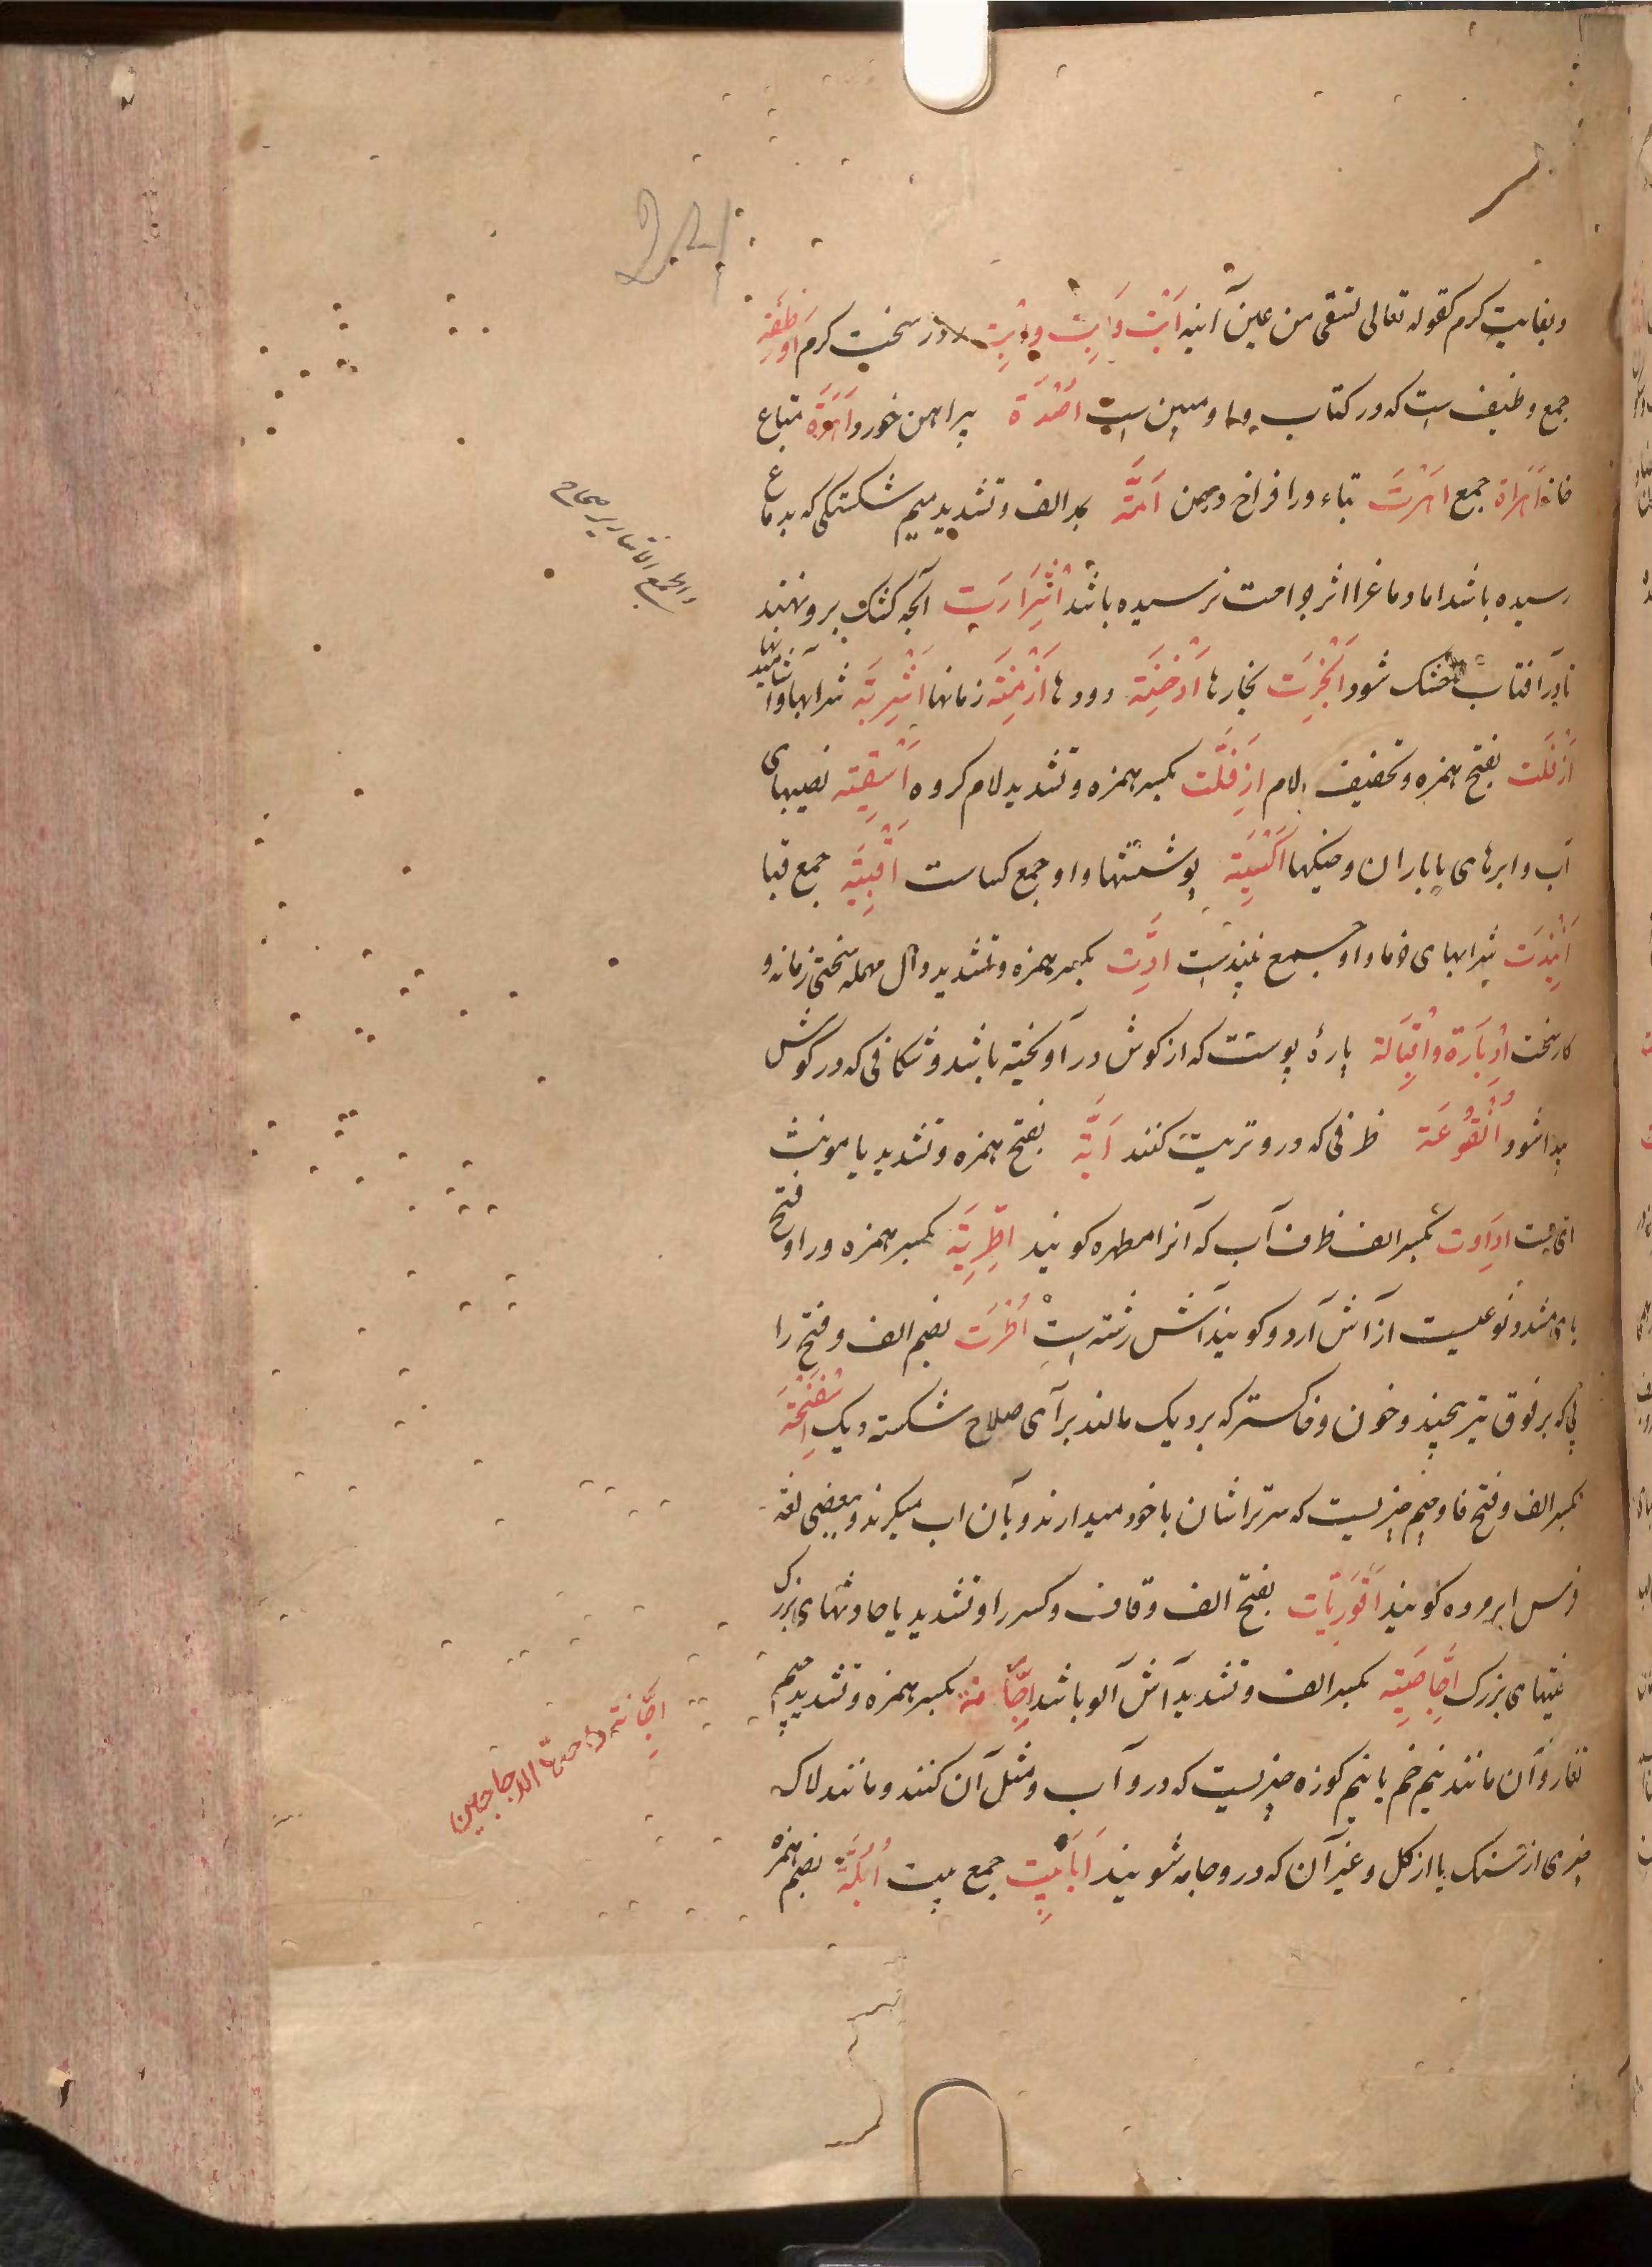 وبغایت گرم کقوله تعالی تسقی من عین آنیة اَبْت وَابِت روز سخت گرم اَوْظِفَه
جمع وظیفه است که در کتاب واو مبین است اُصْدَة پیراهن خورد اَهَرَة متاع
خانه اَهَرَات جمع اَهَرَت تباء ورا فراخ دهن آمَّة بمد الف وتشدید میم شکستگی که بدماغ
رسیده باشد اما دماغ را اثر جراحت نرسیده باشد اِشْرَارَت آنچه کشک برو نهند
تا در آفتاب خشک شود اَبْخِرَت بخارها اَدْخِنَة دودها اَزْمِنَة زمانها اَشْرِبَة شرابها و آشامیدنیها
اَزْفَلَت بفتح همزه وتخفیف لام اِزْفَلَّت بکسر همزه وتشدید لام گروه اَسْقِیَة نصیبهای
آب وابرهای با باران وخیکها اَکْسِیَة پوششها واو جمع کساست اَقْبِیَة جمع قبا
اَنْبِذَت شرابهای خرما واو جمع نبیذست اِدَّت بکسر همزه وتشدید دال مهمله سختی زمانه و
کار سخت اِدْبَارَة واِقْبَالَة پارۀ پوست که از گوش درآویخته باشد وشکافی که در گوش
پیدا شود اُنْقُوعَة ظرفی که درو تریت کنند اَیَّة بفتح همزه وتشدید یا مونث
ای است اِدَاوَت بکسر الف ظرف آب که آنرا مطهره گویند اِطْرِیَة بکسر همزه ورا وفتح
یای مشدد نوعیست از آش آرد وگویند آش رشته است اُطْرَت بضم الف وفتح را
پی که بر فوق تیر پیچند وخون وخاکستر که بر دیک مالند برای صلاح شکسته دیک اِسْفَنْجَة
بکسر الف وفتح فا وجیم چیزیست که سرتراشان با خود میدارند وبآن آب میگیرند وبعضی لغة
فرس ابر مرده گویند اَقْوَرِیَّات بفتح الف وقاف وکسر را وتشدید یا حادثهای بزرگ
فتنهای بزرگ اِجَّاصِیَة بکسر الف وتشدید آش آلو باشد اِجَّانَة بکسر همزه وتشدید جیم
تغار وآن مانند نیم خم یا نیم کوزه چیزیست که درو آب ومثل آن کنند ومانند لاک
چیزی از سنگ یا از گل وغیر آن که درو جامه شویند اَبَابِیت جمع بیت اُبُلَّة بضم همزه
اِجَّانَة واحدة الاجاجین